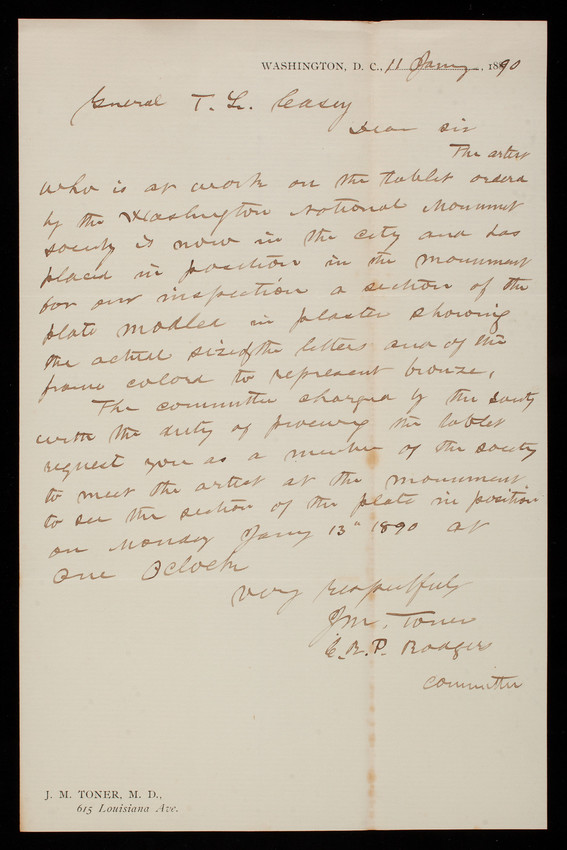 WASHINGTON, D. C., 11 Jany, 1890
General T. L. Casey
Dear sir
The artist
who is at work on the tablet orderd
by the Washington National Monument
society is now in the city and has
placed in position in the monument
for our inspection a section of the
plate modled in plaster showing
the actual size of the letters and of the
frame colord to represent bronze.
The committee charged by the society
with the duty of procuring the tablet
request you as a member of the society
to meet the artist at the monument
to see the section of the plate in position
on Monday Jany 13" 1890 at
One Oclock
Very respectfully
J. M. Toner
C. R. P. Rodgers
Committee
J. M. TONER, M. D.,
615 Louisiana Ave.